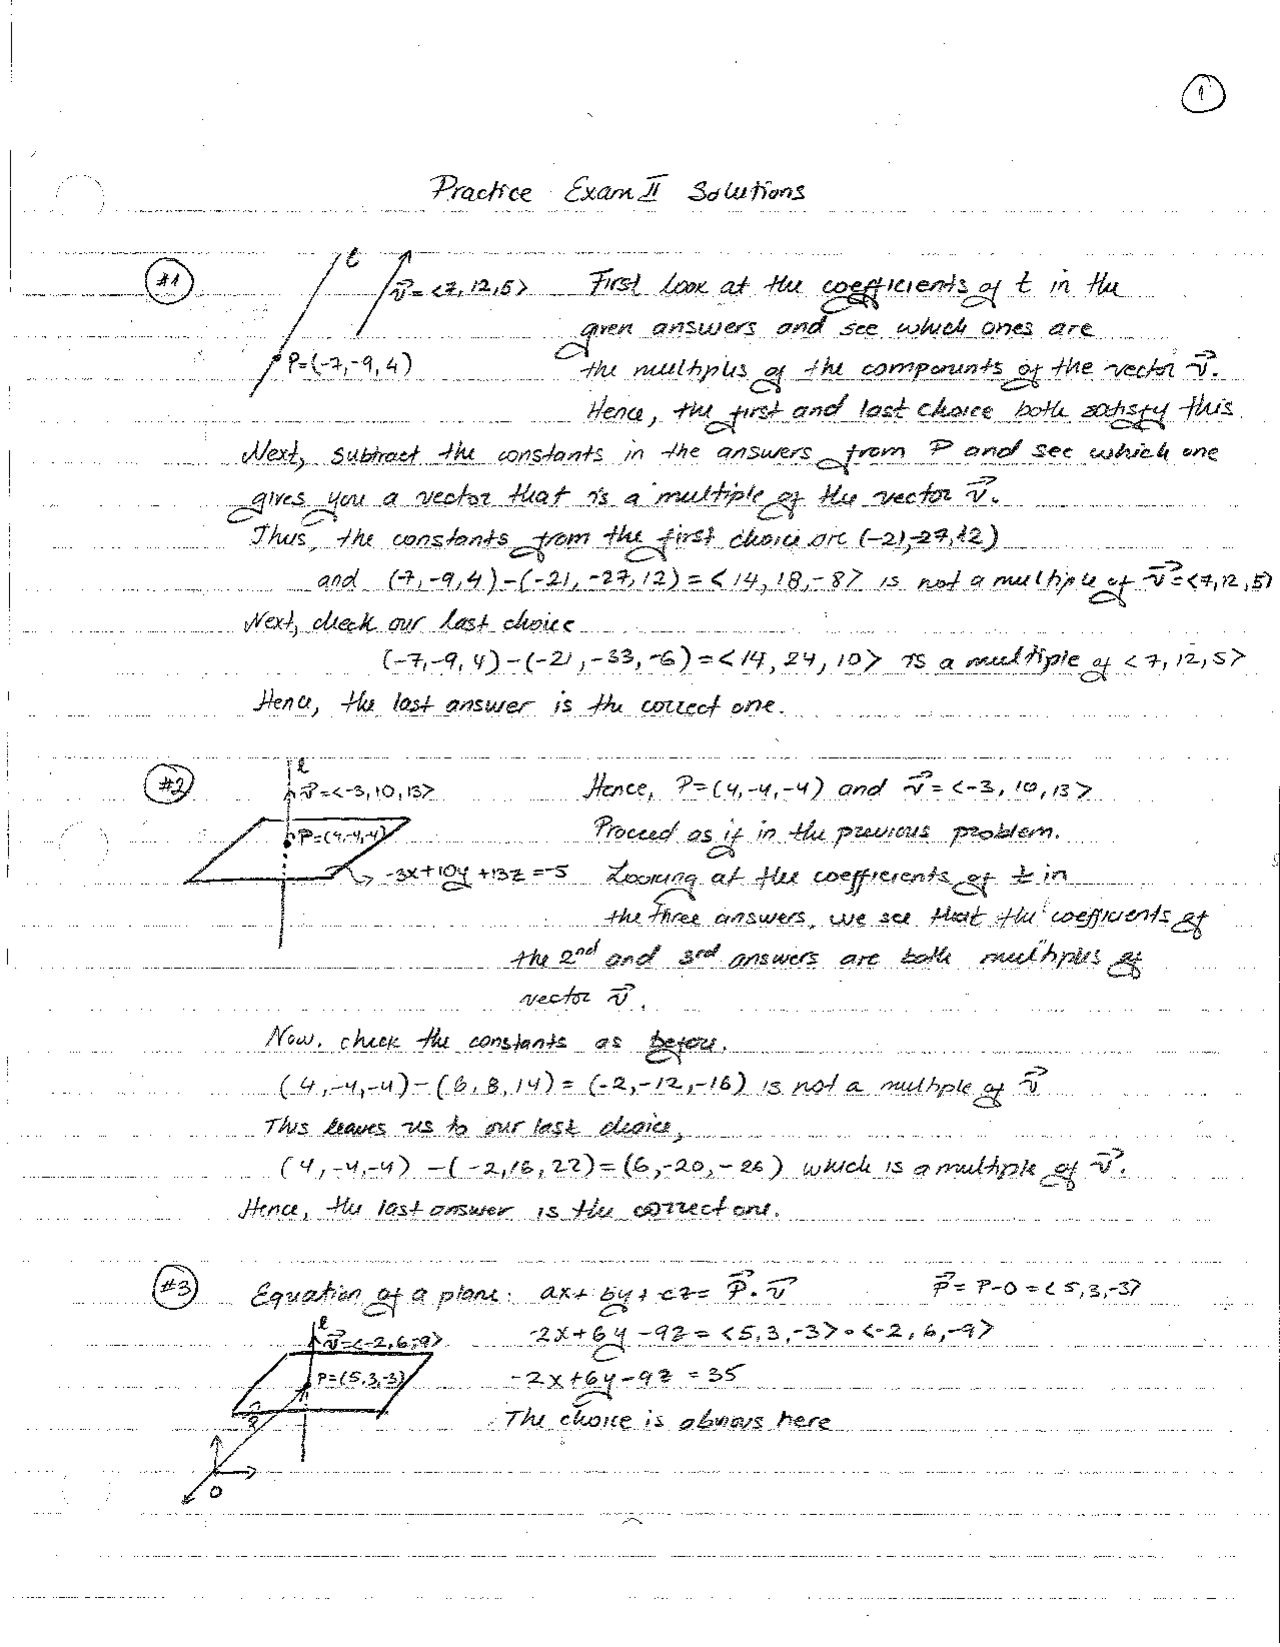 1
Practice Exam II Solutions
#1
ℓ
v⃗=<7,12,5>
P=(-7,-9,4)
First look at the coefficients of t in the
given answers and see which ones are
the multiples of the components of the vector v⃗.
Hence, the first and last choice both satisfy this.
Next, subtract the constants in the answers from P and see which one
gives you a vector that is a multiple of the vector v⃗.
Thus, the constants from the first choice are (-21,-27,12)
and (7,-9,4)-(-21,-27,12)=<14,18,-8> is not a multiple of v⃗=<7,12,5>
Next, check our last choice
(-7,-9,4)-(-21,-33,-6)=<14,24,10> is a multiple of <7,12,5>
Hence, the last answer is the correct one.
#2
ℓ
v⃗=<-3,10,13>
P=(4,-4,-4)
-3x+10y+13z=-5
Hence, P=(4,-4,-4) and v⃗=<-3,10,13>
Proceed as if in the previous problem.
Looking at the coefficients of t in
the three answers, we see that the coefficients of
the 2nd and 3rd answers are both multiples of
vector v⃗.
Now, check the constants as before.
(4,-4,-4)-(6,8,14)=(-2,-12,-18) is not a multiple of v⃗
This leaves us to our last choice,
(4,-4,-4)-(-2,16,22)=(6,-20,-26) which is a multiple of v⃗.
Hence, the last answer is the correct one.
#3
Equation of a plane: ax+by+cz= p⃗·v⃗
p⃗=P-O=<5,3,-3>
ℓ
v⃗=<-2,6,-9>
P=(5,3,-3)
p⃗
O
-2x+6y-9z=<5,3,-3>·<-2,6,-9>
-2x+6y-9z=35
The choice is obvious here